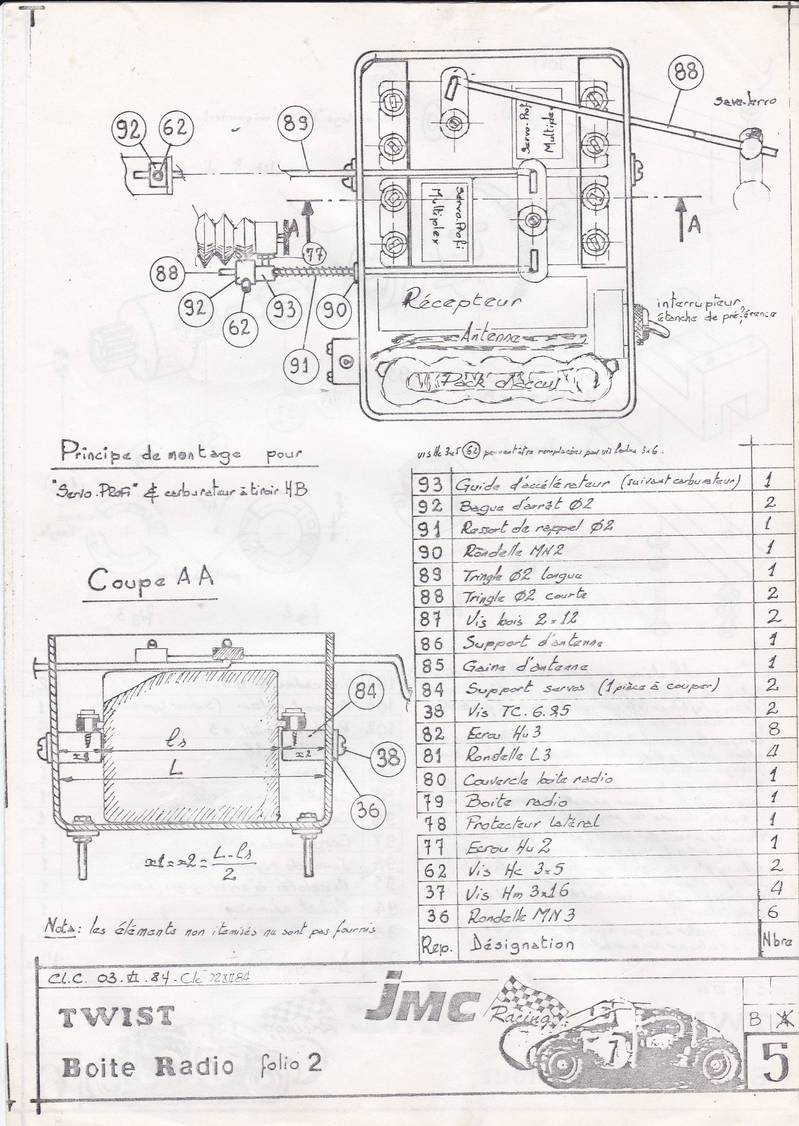 88
Save-servo
92 62
89
Servo-Profi
Multiplex
Servo-Profi
Multiplex
A
A
77
88
92
62
93
91
90
Récepteur
Antenne
Pack d'accus
interrupteur
étanche de préférence
Principe de montage pour
"Servo-Profi" & carburateur à tiroir HB
vis Hc 3x5 62 peuvent être remplacées par vis
93 Guide d'accélérateur (suivant carburateur) 1
92 Bague d'arrêt Ø2 2
91 Ressort de rappel Ø2 1
90 Rondelle MN2 1
89 Tringle Ø2 longue 1
88 Tringle Ø2 courte 2
87 Vis bois 2x12 2
86 Support d'antenne 1
85 Gaine d'antenne 1
84 Support servos (1 pièce à couper) 2
38 Vis TC. 2
82 Ecrou Hu3 8
81 Rondelle L3 4
80 Couvercle boite radio 1
79 Boite radio 1
78 Protecteur latéral 1
77 Ecrou Hu2 1
62 Vis Hc 3x5 2
37 Vis Hm 3x16 4
36 Rondelle MN3 6
Rep. Désignation Nbre
Coupe AA
84
38
36
ls
L
x2
x1=x2= L-ls
2
Nota: les éléments non itemisés ne sont pas fournis
C.L.C. 03.VI.84.
TWIST
Boite Radio folio 2
JMC Racing
7
B
5